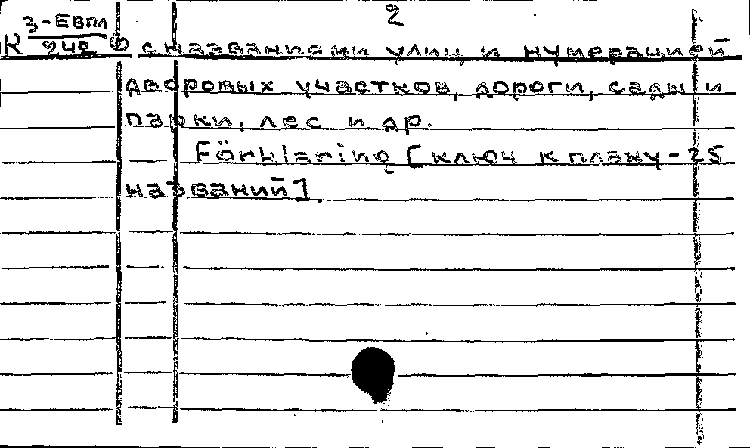 2
К 3-Евпл
942 с названиями улиц и нумерацией
дворовых участков, дороги, сады и
парки, лес и др.
Förklaring [ключ к плану - 25
названий].